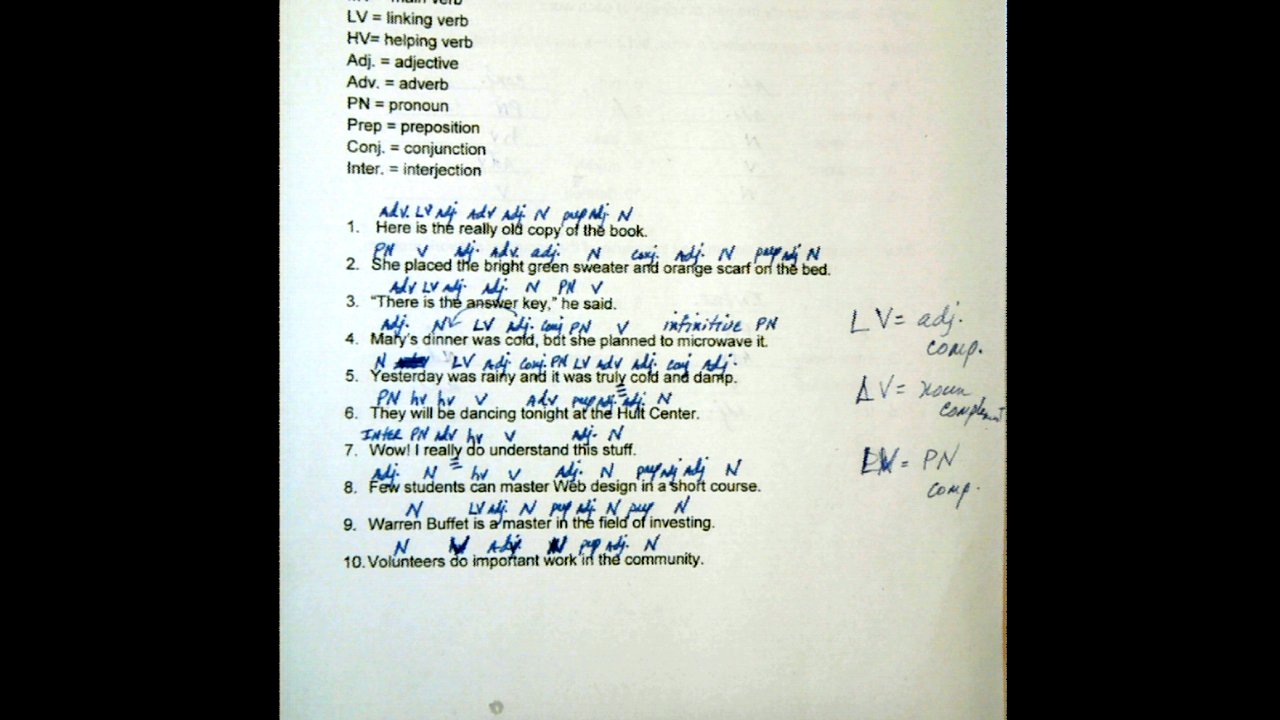 LV = linking verb
HV= helping verb
Adj. = adjective
Adv. = adverb
PN = pronoun
Prep = preposition
Conj. = conjunction
Inter. = interjection
Adv. LV Adj. Adv Adj. N prep Adj. N
1. Here is the really old copy of the book.
PN V Adj. Adv. adj. N conj. Adj. N prep adj N
2. She placed the bright green sweater and orange scarf on the bed.
Adv LV Adj. Adj. N PN V
3. “There is the answer key,” he said.
Adj. N LV Adj. conj PN V infinitive PN
4. Mary's dinner was cold, but she planned to microwave it.
N LV Adj. conj. PN LV Adv Adj. conj Adj.
5. Yesterday was rainy and it was truly cold and damp.
PN hv hv V Adv prep Adj. adj. N
6. They will be dancing tonight at the Hult Center.
INTER PN adv hv V adj. N
7. Wow! I really do understand this stuff.
Adj. N hv V Adj. N prep adj adj N
8. Few students can master Web design in a short course.
N LV adj. N prep adj N prep N
9. Warren Buffet is a master in the field of investing.
N V Adj. N prep adj. N
10. Volunteers do important work in the community.
LV = adj.
comp.
LV = noun
complement
= PN
comp.